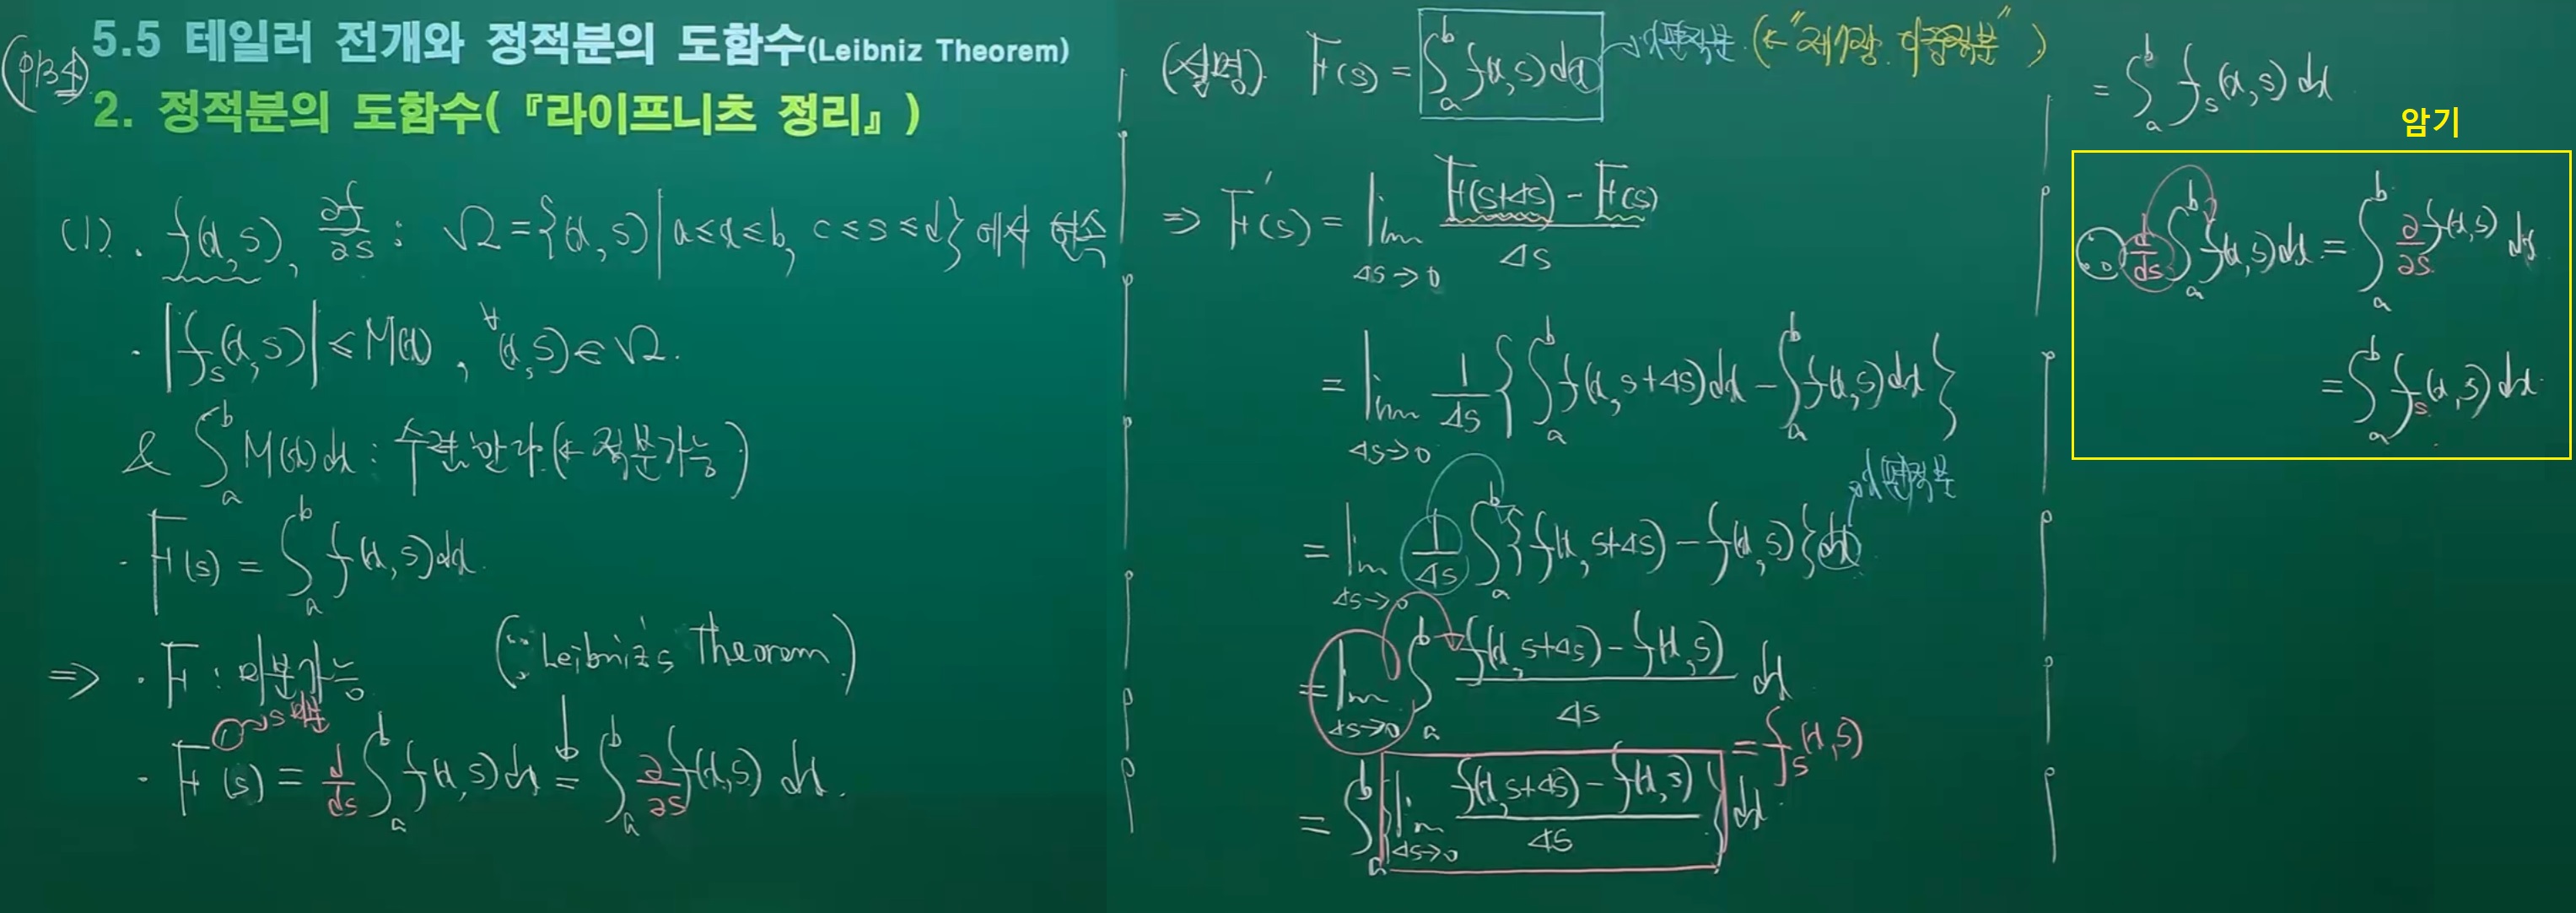 5.5 테일러 전개와 정적분의 도함수(Leibniz Theorem)
2. 정적분의 도함수(『라이프니츠 정리』)
(1). f(x,s), ∂f/∂s : Ω = {(x,s) | a≤x≤b, c≤s≤d} 에서 연속
· |f_s(x,s)| ≤ M(x), ∀(x,s)∈Ω.
& ∫_a^b M(x)dx : 수렴한다.(← 적분가능)
· F(s) = ∫_a^b f(x,s)dx.
⇒ · F : 미분가능 (∵ Leibniz's Theorem)
s 미분
· F'(s) = d/ds ∫_a^b f(x,s)dx = ∫_a^b ∂/∂s f(x,s) dx.
(설명) F(s) = ∫_a^b f(x,s)dx → x편적분. (← " 이상적분")
⇒ F'(s) = lim_{Δs→0} (F(s+Δs) - F(s))/Δs
= lim_{Δs→0} 1/Δs { ∫_a^b f(x,s+Δs)dx - ∫_a^b f(x,s)dx }
= lim_{Δs→0} 1/Δs ∫_a^b {f(x,s+Δs) - f(x,s)}dx x편적분
= lim_{Δs→0} ∫_a^b (f(x,s+Δs) - f(x,s))/Δs dx
= ∫_a^b { lim_{Δs→0} (f(x,s+Δs) - f(x,s))/Δs } dx = f_s(x,s)
= ∫_a^b f_s(x,s) dx
암기
∴ d/ds ∫_a^b f(x,s)dx = ∫_a^b ∂/∂s f(x,s) dx
= ∫_a^b f_s(x,s) dx